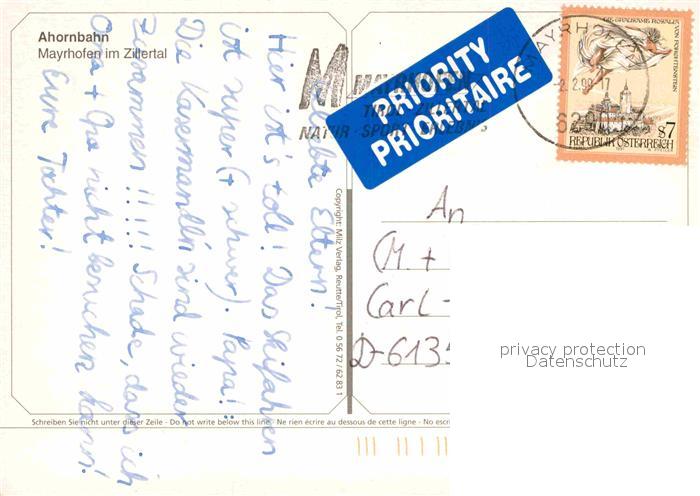 Ahornbahn
Mayrhofen im Zillertal
Geliebte Eltern!
Hier ist's toll! Das Skifahren
ist super (+ schwer). Papa!:
Die Kasermandln sind wieder
zusammen!!!!! Schade, dass ich
Oma + Opa nicht besuchen kann!
Eure Tochter!
Copyright: Milz Verlag, Reutte/Tirol, Tel. 0 56 72 / 62 83 1
Schreiben Sie nicht unter dieser Zeile - Do not write below this line - Ne rien écrire au dessous de cette ligne - Non escri
PRIORITY
PRIORITAIRE
NATUR · SPORT · ERLEBNIS
MAYRHOFEN
-2.2.98-17
DIE GRAUSAME ROSALIA
VON FORCHTENSTEIN
S7
REPUBLIK ÖSTERREICH
An
(M. +
Carl-
D-613
privacy protection
Datenschutz